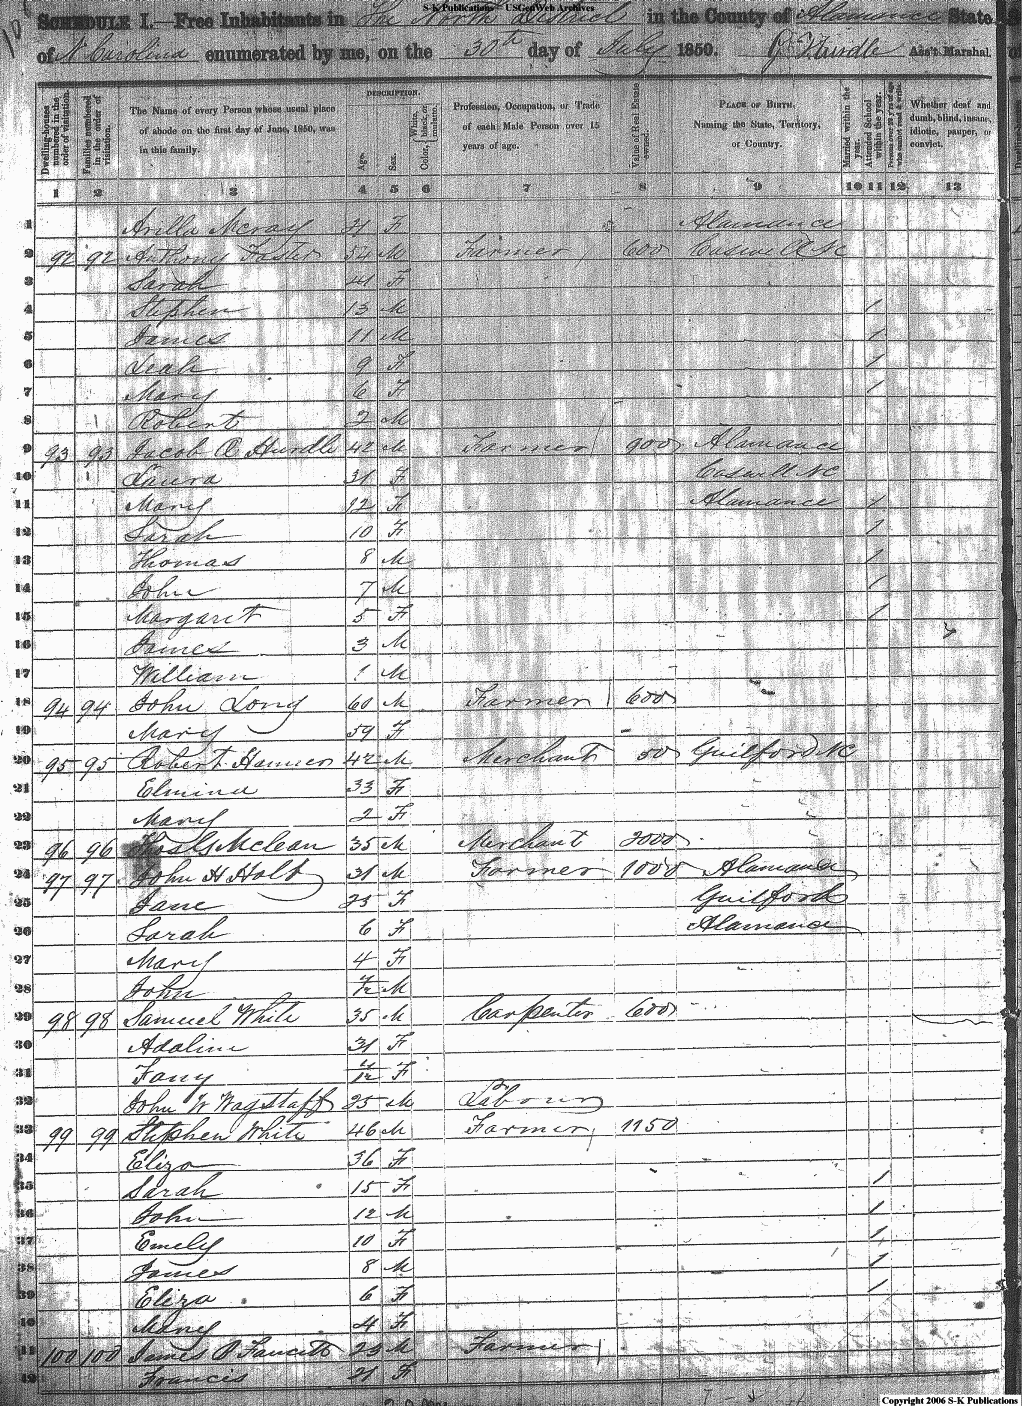 S-K Publications USGenWeb Archives
SCHEDULE I.—Free Inhabitants in The North District in the County of Alamance State
of N Carolina enumerated by me, on the 30th day of July 1850. Hurdle Ass't Marshal.
Dwelling-houses numbered in the order of visitation.
Families numbered in the order of visitation.
The Name of every Person whose usual place of abode on the first day of June, 1850, was in this family.
DESCRIPTION.
Age.
Sex.
Color, White, black, or mulatto.
Profession, Occupation, or Trade of each Male Person over 15 years of age.
Value of Real Estate owned.
PLACE OF BIRTH, Naming the State, Territory, or Country.
Married within the year.
Attended School within the year.
Persons over 20 y'rs of age who cannot read & write.
Whether deaf and dumb, blind, insane, idiotic, pauper, or convict.
1 2 3 4 5 6 7 8 9 10 11 12 13
1 Arilla Mcray 21 F Alamance
2 92 92 Anthony Foster 54 M Farmer 600 Caswell NC
3 Sarah 41 F
4 Stephen 13 M 1
5 James 11 M 1
6 Leah 9 F 1
7 Mary 6 F 1
8 Robert 2 M
9 93 93 Jacob A Hurdle 42 M Farmer 900 Alamance
10 Laura 31 F Caswell NC
11 Mary 12 F Alamance 1
12 Sarah 10 F 1
13 Thomas 8 M 1
14 John 7 M 1
15 Margaret 5 F 1
16 James 3 M
17 William 1 M
18 94 94 John Long 60 M Farmer 600
19 Mary 59 F
20 95 95 Robert Hanner 42 M Merchant 50 Guilford NC
21 Elmina 33 F
22 Mary 2 F
23 96 96 Mclean 35 M Merchant 2000
24 97 97 John H Holt 31 M Farmer 1000 Alamance
25 Jane 25 F Guilford
26 Sarah 6 F Alamance
27 Mary 4 F
28 John M
29 98 98 Samuel White 35 M Carpenter 600
30 Adaline 31 F
31 Fany F
32 John W Wagstaff 25 M Labour
33 99 99 Stephen White 46 M Farmer 1150
34 Eliza 36 F
35 Sarah 15 F 1
36 John 12 M 1
37 Emely 10 F 1
38 James 8 M 1
39 Eliza 6 F 1
40 Mary 4 F
41 100 100 James P Faucett 23 M Farmer
42 Francis 21 F
Copyright 2006 S-K Publications